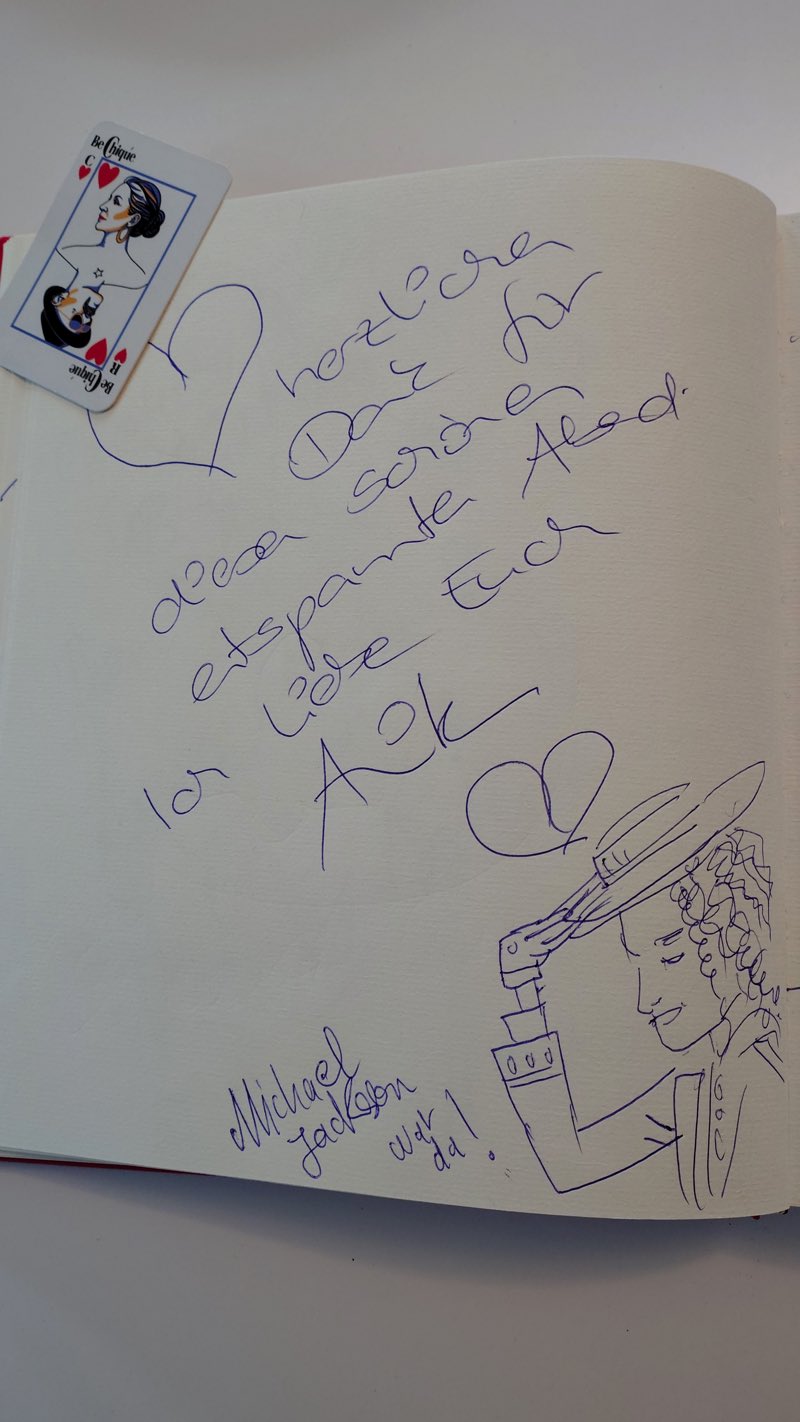 Be Chique
C
R
Be Chique
herzlichen
Dank für
diesen schönen
entspannten Abend.
Ich liebe Euch
Michael
Jackson
war
da!